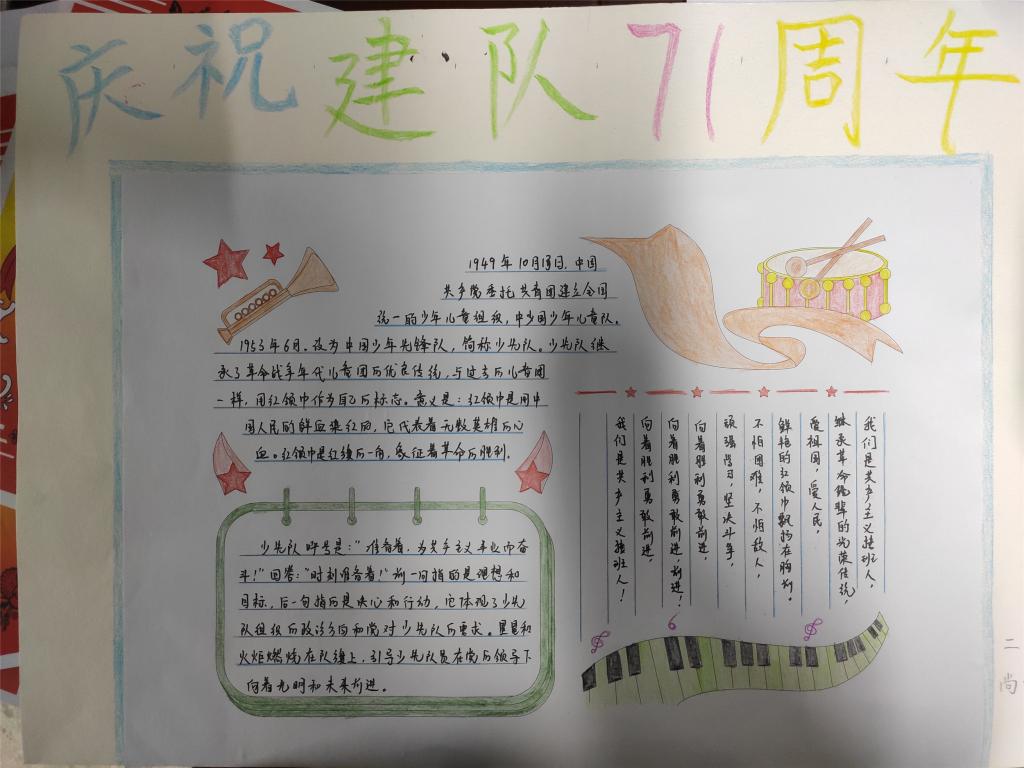 庆祝建队71周年
1949年10月13日,中国
共产党委托共青团建立全国
统一的少年儿童组织,中国少年儿童队。
1953年6月,改为中国少年先锋队,简称少先队。少先队继
承了革命战争年代儿童团的优良传统,与过去的儿童团
一样,用红领巾作为自己的标志。意义是:红领巾是用中
国人民的鲜血染红的,它代表着无数英雄的心
血。红领巾是红旗的一角,象征着革命的胜利。
少先队呼号是:“准备着,为共产主义事业而奋
斗!”回答:“时刻准备着!”前一句指的是理想和
目标,后一句指的是决心和行动,它体现了少先
队组织的政治方向和党对少先队的要求。星星和
火炬燃烧在队旗上,引导少先队员在党的领导下
向着光明和未来前进。
我们是共产主义接班人,
继承革命先辈的光荣传统,
爱祖国,爱人民,
鲜艳的红领巾飘扬在胸前。
不怕困难,不怕敌人,
顽强学习,坚决斗争,
向着胜利勇敢前进,
向着胜利勇敢前进!前进!
向着胜利勇敢前进,
我们是共产主义接班人!
二
尚